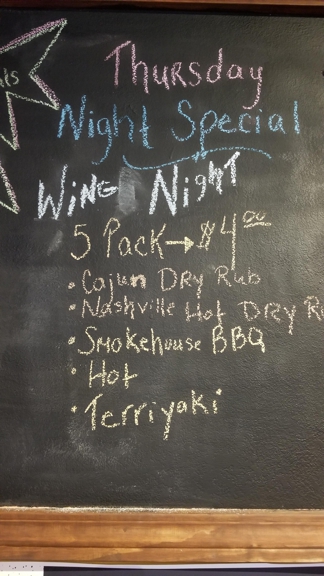 Thursday
Night Special
Wing Night
5 Pack → $4.00
• Cajun Dry Rub
• Nashville Hot Dry
• Smokehouse BBQ
• Hot
• Terriyaki